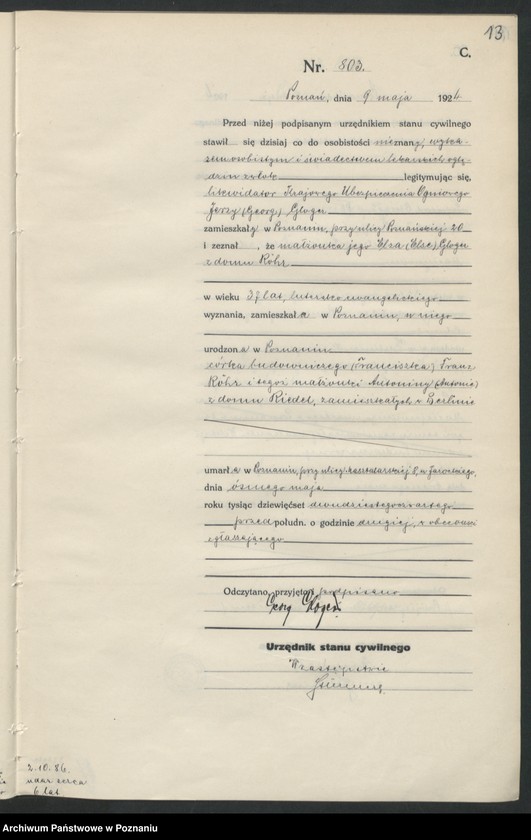 13
C.
Nr. 803.
Poznań, dnia 9 maja 1924
Przed niżej podpisanym urzędnikiem stanu cywilnego
stawił się dzisiaj co do osobistości nieznany, wykaz-
zem osobistym i świadectwem lekarskich oglę-
dzin zwłok legitymując się,
likwidator Krajowego Ubezpieczenia Ogniowego
Jerzy (Georg) Gloger
zamieszkały w Poznaniu, przy ulicy Poznańskiej 20
i zeznał, że małżonka jego Elza (Else) Gloger
z domu Röhr
w wieku 37 lat, luterańsko ewangelickiego
wyznania, zamieszkała w Poznaniu, u niego
urodzona w Poznaniu
córka budowniczego (Franciszka) Franz
Röhr i tegoż małżonki Antoniny (Antonie)
z domu Riedel, zamieszkałych w Berlinie
umarła w Poznaniu, przy ulicy
dnia ósmego maja
roku tysiąc dziewięćset dwudziestego czwartego
przed połudn. o godzinie drugiej, w obecności
zgłaszającego
Odczytano, przyjęto i podpisano
Georg Gloger
Urzędnik stanu cywilnego
W zastępstwie
2.10.86
udar serca
6 lat
Archiwum Państwowe w Poznaniu